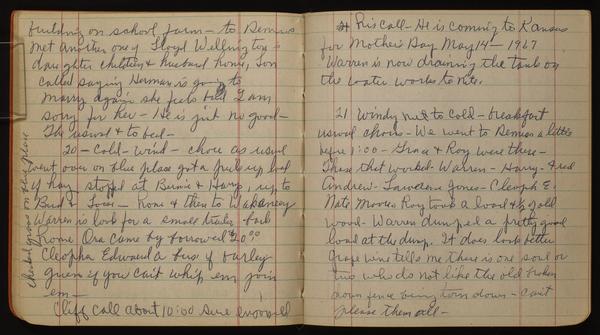 building on school farm - to Bemis
met another one of Lloyd Wellington's
daughter children & husband home, Son
called saying Herman is going to
marry again she feels bad I am
sorry for her - He is just no good -
The usual & to bed -
20 - cold - wind - chore as usual
went over on blue place got a pick up load
of hay, stopped at Bernie & Harry, up to
Bud & - Home & then to Wakarusy
Warren is look for a small trailer - back
home Ora came by borrowed $20.00
Cleopha Edward a bus of barley
guess if you can't whip em join
em -
Cliff call about 10:00 sure enjoyed
checked grass on blue place
his call - He is coming to Kansas
for Mother's Day May 14 - 1967
Warren is now draining the tank on
the water works to nite.
21 Windy not to cold - breakfast
usual chores - We went to Bemis a little
before 1:00 - Grace & Roy were there -
Those that worked - Warren - Harry - Fred
Andrew - Lawrence Jones - Cleoph E.
Nate Moore, Roy took a load & ½ good
wood - Warren dumped a pretty good
load at the dump. It does look better
Grape vine tells me there is one soul or
two who do not like the old broken
down fence being torn down - can't
please them all -